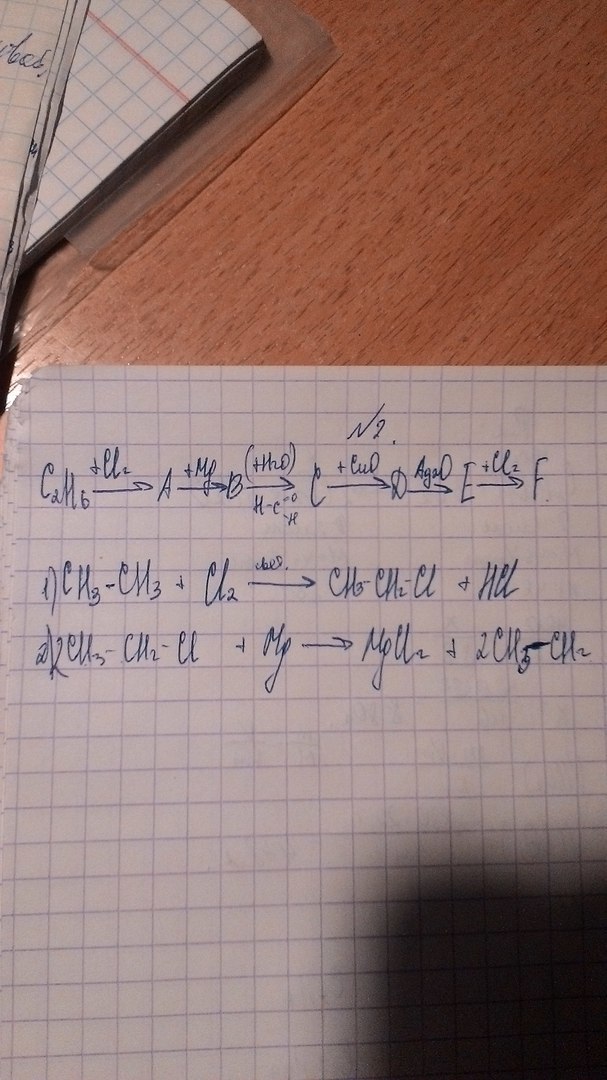 №2.
C₂H₆ +Cl₂→ A +Mg→ B (+H₂O)→ C +CuO→ D Ag₂O→ E +Cl₂→ F
H-C=O-H
1) CH₃-CH₃ + Cl₂ → CH₃-CH₂-Cl + HCl
2) 2CH₃-CH₂-Cl + Mg → MgCl₂ + 2CH₃-CH₂